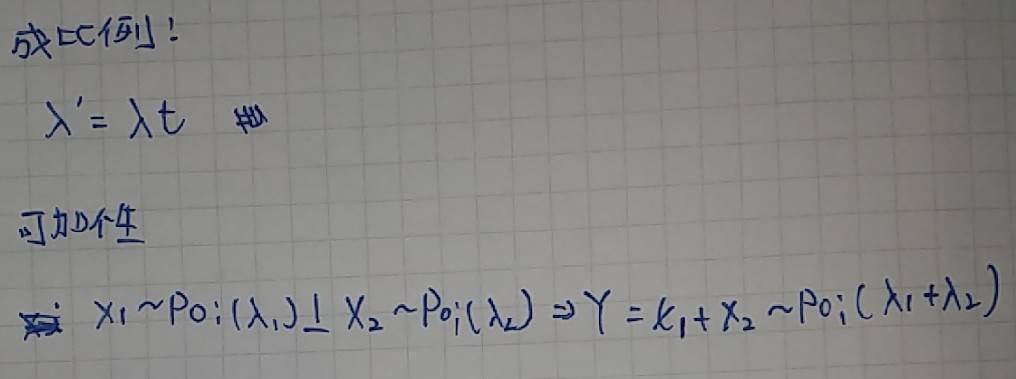 成比例!
λ' = λt #
可加性
X₁ ~ Poi(λ₁) ⊥ X₂ ~ Poi(λ₂) ⇒ Y = X₁ + X₂ ~ Poi(λ₁+λ₂)